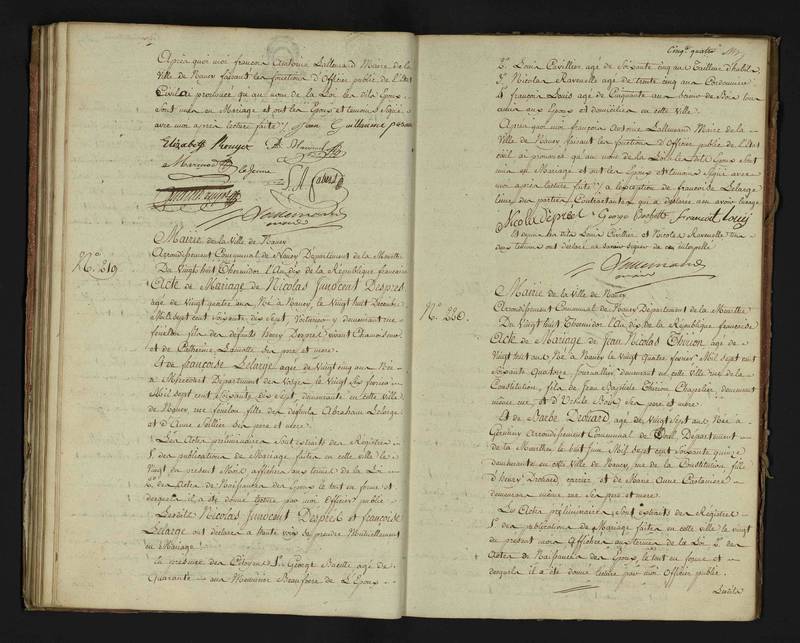 Après quoi moi françois Antoine Lallemand Maire de la
Ville de Nancy faisant les fonctions d'Officier public de l'Etat
Civil ai prononcé qu'au nom de la Loi les dits Epoux
Sont unis en Mariage et ont les Epoux et temoins Signé
avec moi après lecture faite Jean Guillaume
Elizabeth
Marmod le jeune
Lallemand
maire
Mairie de la Ville de Nancy
N.° 219
Arrondissement Communal de Nancy Département de la Meurthe
Du Vingt huit Thermidor l'An dix de la République française
Acte de Mariage de Nicolas Innocent Desprès
agé de Vingt quatre ans Né à Nancy, le Vingt huit Decembre
Mil sept cent Soixante dix sept, Voiturier y demeurant rue
fils des défunts henry Desprel vivant
et de Catherine Lamotte Ses père et mere
Et de françoise Lelarge agée de Vingt cinq ans Née
à Mirecourt Département des Vosges le Vingt six fevrier
Mil sept cent Soixante dix sept, demeurante en cette Ville
de Nancy, rue fille des défunts Abraham Lelarge
et d'Anne Ses père et mere
Les Actes préliminaires sont extraits des Registres
1.° des publications de Mariage faites en cette Ville le
Vingt du présent Mois affichées aux termes de la Loi
2.° des Actes de Naissances des Epoux le tout en forme et
desquels il a été donné lecture par moi Officier public
Lesdits Nicolas Innocent Desprès et françoise
Lelarge ont déclaré à haute voix Se prendre Mutuellement
en Mariage
en présence des Citoyens 1.° George agé de
Quarante ans Menuisier Beaufrere de l'Epoux
Cinq.te quatre
2.° Louis Cuvillier agé de Soixante cinq ans Tailleur d'habits
3.° Nicolas Ravenelle agé de trente cinq ans Cordonnier
4.° françois Louis agé de Cinquante ans de Bois tous
amis aux Epoux et domiciliés en cette Ville.
Après quoi moi françois Antoine Lallemand Maire de la
Ville de Nancy faisant les fonctions d'Officier public de l'Etat
civil ai prononcé qu'au nom de la Loi les dits Epoux sont
unis en Mariage et ont les Epoux et temoins Signé avec
moi après lecture faite à l'exception de francoise Lelarge
l'une des parties Contractantes qui a déclaré
Nicolas despres George francois Louis
Et quant aux dits Louis Cuvillier et Nicolas Ravenelle
temoins ont déclaré ne Savoir signer de ce interpellé
Lallemand
maire
Mairie de la Ville de Nancy
N.° 220.
Arrondissement Communal de Nancy Département de la Meurthe
Du Vingt huit Thermidor l'An dix de la République française
Acte de Mariage de Jean Nicolas Thirion agé de
Vingt huit ans Né à Nancy le Vingt quatre fevrier Mil sept cent
Soixante Quatorze, Journalier demeurant en cette Ville rue de la
Constitution, fils de Jean Baptiste Thirion Chapelier, demeurant
même rue et d'Ursule Ses père et mere
Et de Barbe Drouard agée de Vingt Sept ans Née à
Arrondissement Communal de Toul, Département
de la Meurthe le huit Juin Mil sept cent Soixante quinze
demeurante en cette Ville de Nancy, rue de la Constitution fille
d'henry Drouard, et de Marie Anne
demeurans même rue Ses père et mere
Les Actes préliminaires Sont extraits des Registres
1.° des publications de Mariage faites en cette Ville le vingt
du présent mois Affichées aux termes de la Loi 2.° des
Actes de Naissances des Epoux, le tout en forme et
desquels il a été donné lecture par moi Officier public.
Lesdits